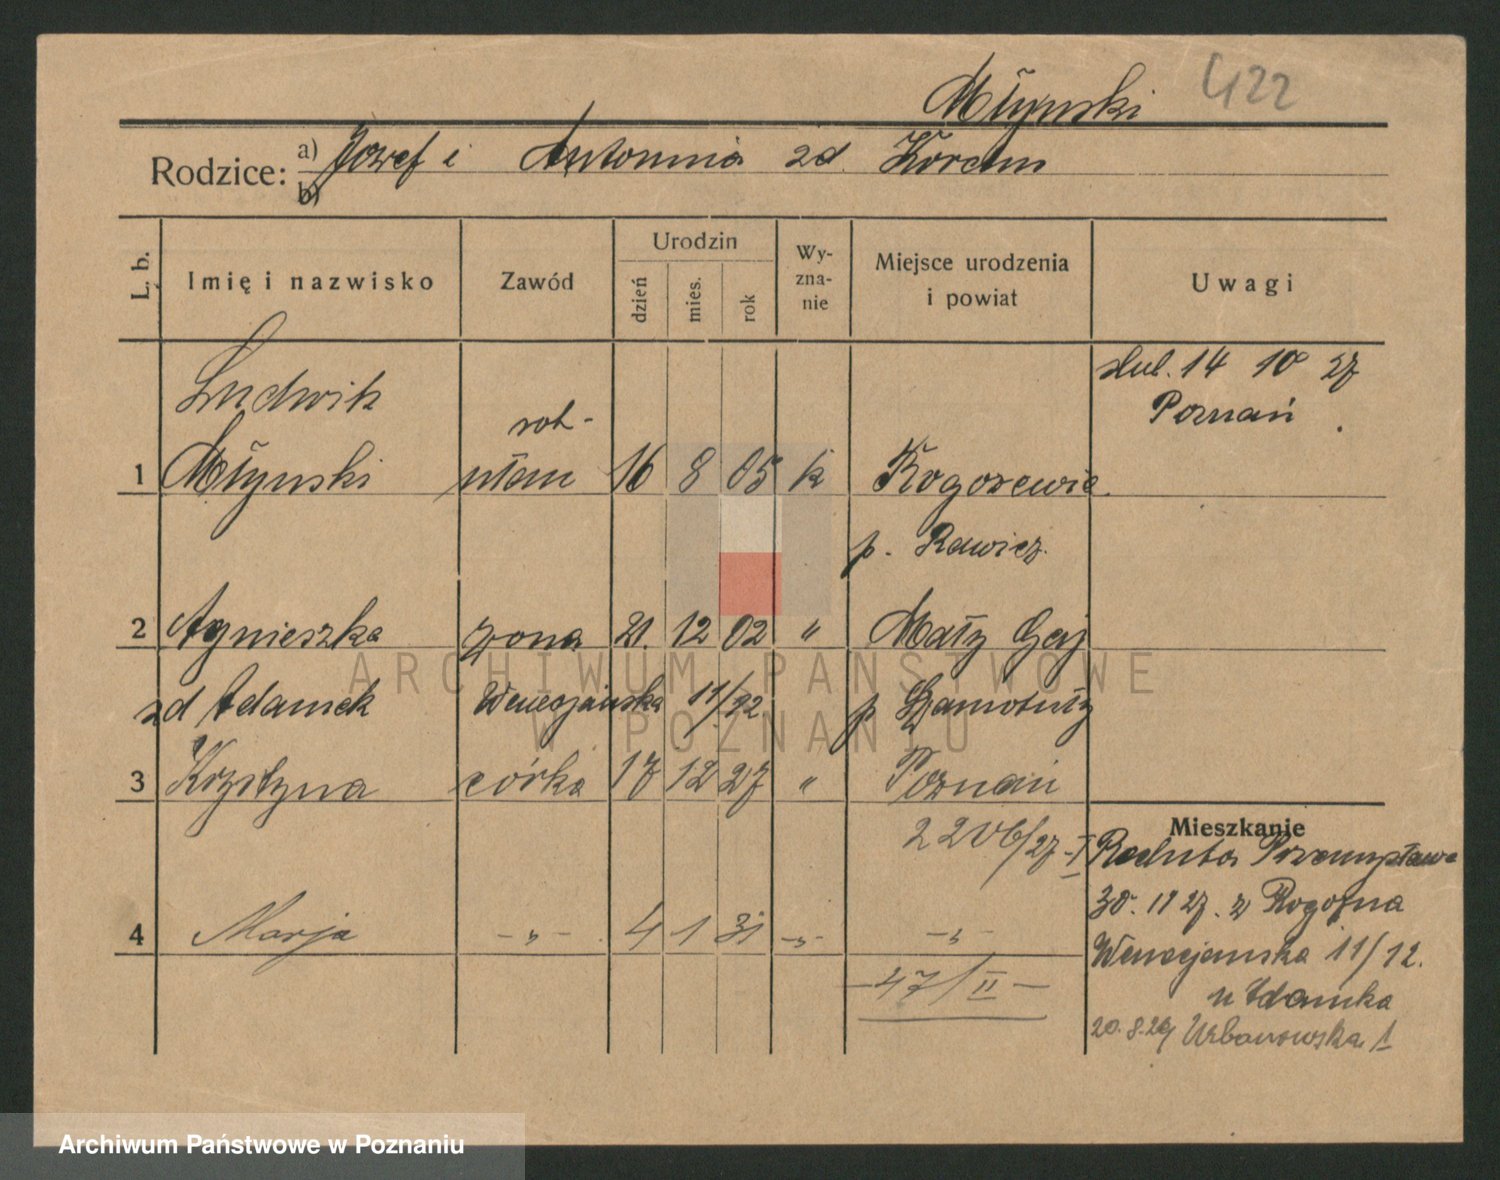 Młynski 422
Rodzice: a) Józef i Antonina zd.
b)
L. b. Imię i nazwisko Zawód Urodzin dzień mies. rok Wy-zna-nie Miejsce urodzenia i powiat Uwagi
Ludwik ślub. 14 10 27
rob- Poznań
1 Młynski ułan 16 8 05 k
p. Rawicz
2 Agnieszka żona 21. 12 02 " Mały Gaj
zd Adamek Wenecjańska 11/12 p Szamotuły
3 Krystyna córka 17 12 27 " Poznań
2206/27-I
Mieszkanie
Reduta Przemysława
30. 11 27. z
4 Marja -"- 4 1 31 -"- -"-
Wenecjanska 11/12.
-47/II-
u Adamka
20.8.29 Urbanowska 1
ARCHIWUM PAŃSTWOWE
W POZNANIU
Archiwum Państwowe w Poznaniu